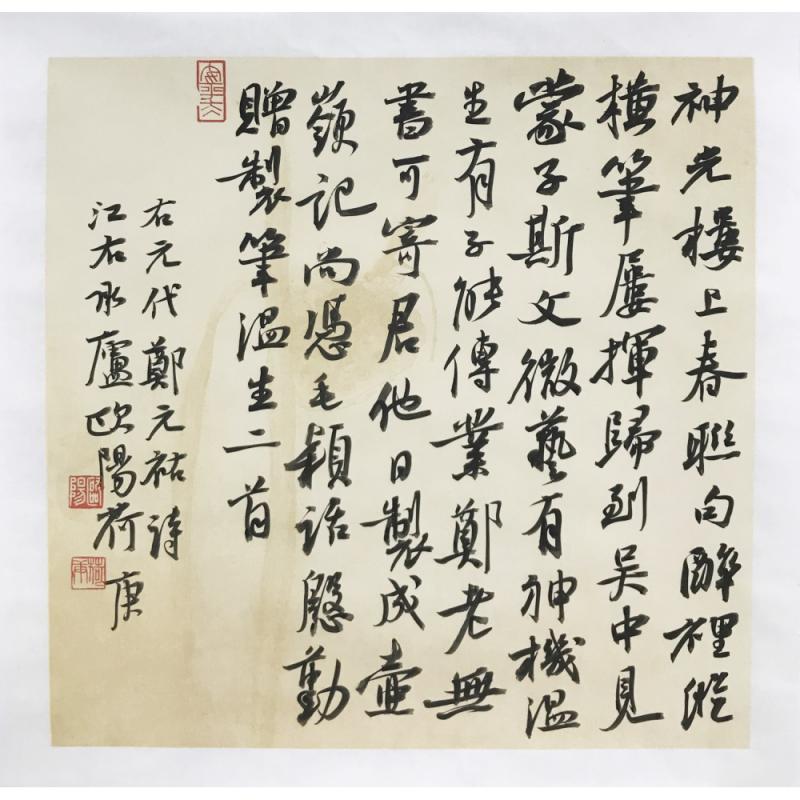 神光樓上春聯句醉裡縱
橫筆屢揮歸到吳中見
蒙子斯文微藝有神機溫
生有子能傳業鄭老無
書可寄君他日製成壺
嶺記尚憑毛穎話慇勤
贈製筆溫生二首
右元代鄭元祐詩
江右水廬歐陽荷庚
歐陽